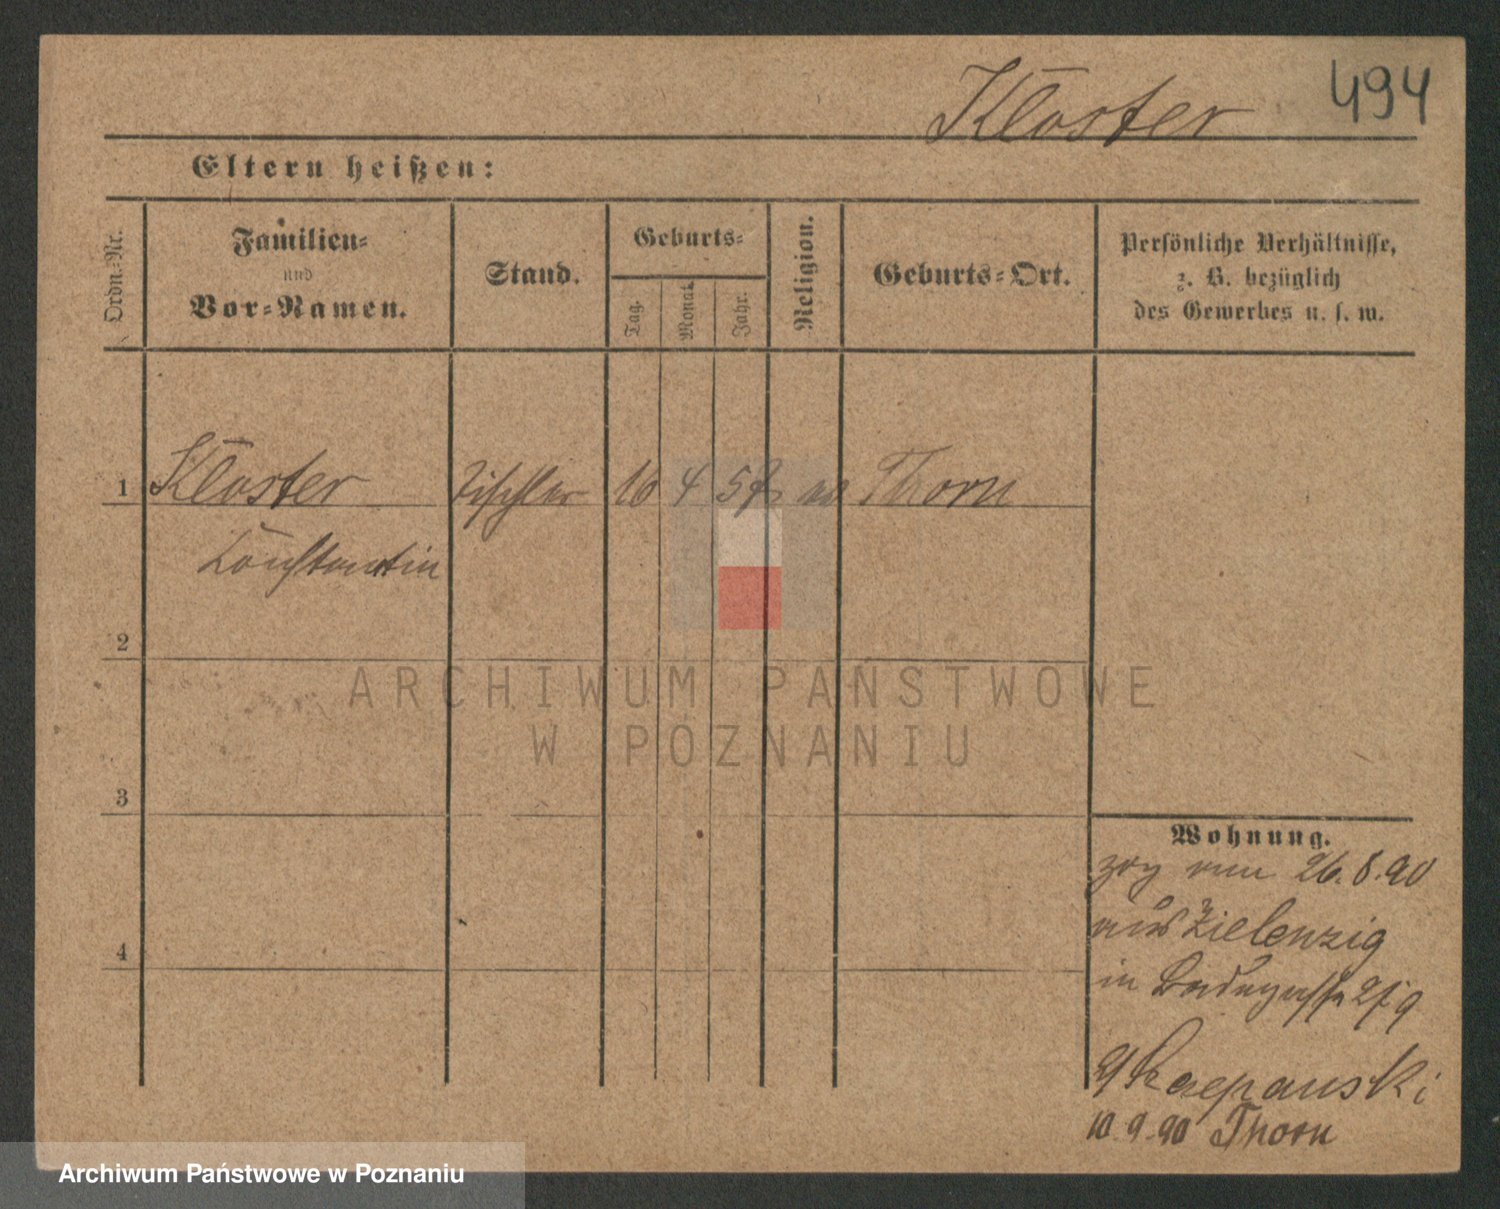 Kloster 494
Eltern heißen:
Ordn.-Nr.
Familien-
und
Vor-Namen.
Stand.
Geburts-
Tag.
Monat.
Jahr.
Religion.
Geburts-Ort.
Persönliche Verhältnisse,
z. B. bezüglich
des Gewerbes u. s. w.
1 Kloster Tischler 16 4 57 Thorn
Constantin
2
ARCHIWUM PAŃSTWOWE
W POZNANIU
3
Wohnung.
zog vom 26.8.90
aus Zielenzig
in
4
10.9.90 Thorn
Archiwum Państwowe w Poznaniu